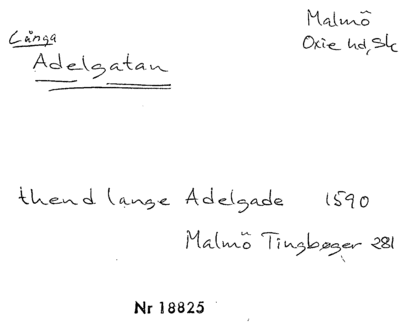 Malmö
Oxie hd, Sk
Långa
Adelgatan
thend lange Adelgade 1590
Malmö Tingbøger 281
Nr 18825